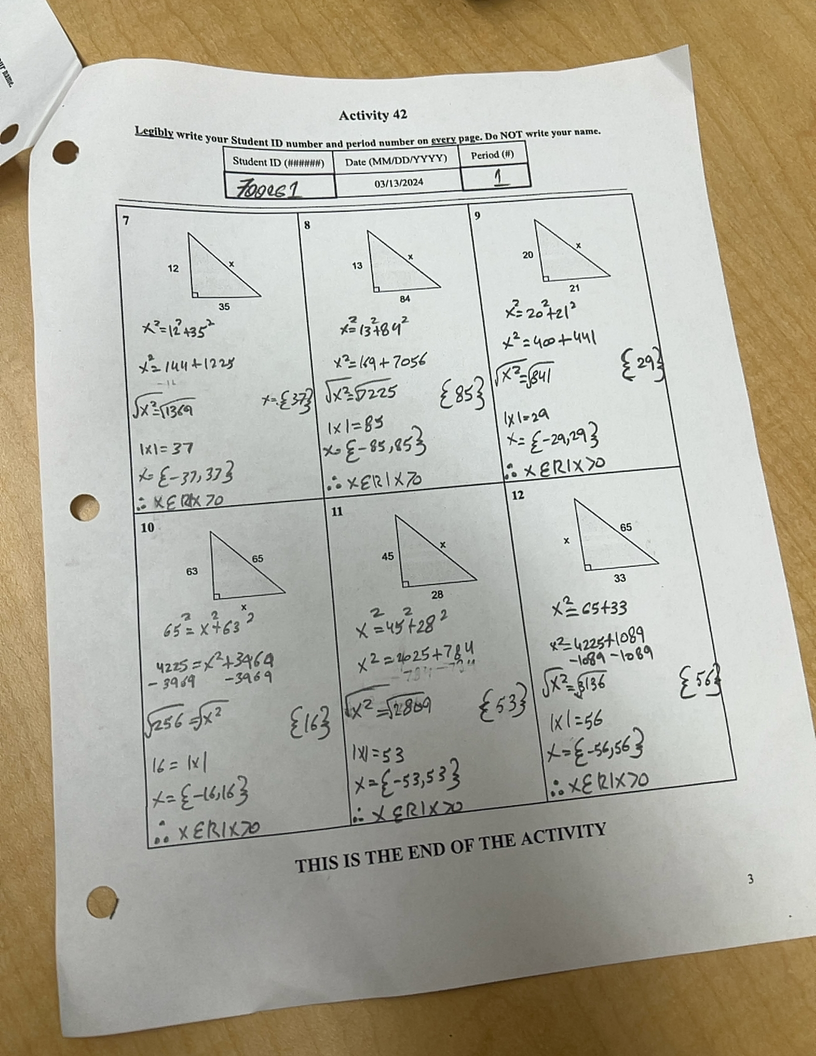 ur name.
Activity 42
Legibly write your Student ID number and period number on every page. Do NOT write your name.
Student ID (######) Date (MM/DD/YYYY) Period (#)
03/13/2024 1
7
12
x
35
x²=12²+35²
x²=144+1225
√x²=√1369
x={37}
|x|=37
x={-37,37}
∴ XεR|X>0
8
13
x
84
x²=13²+84²
x²=169+7056
√x²=√7225
{85}
|x|=85
x={-85,85}
∴ XεR|X>0
9
20
x
21
x²=20²+21²
x²=400+441
√x²=√841
{29}
|x|=29
x={-29,29}
∴ XεR|X>0
10
63
65
x
65²=x²+63²
4225=x²+3969
-3969 -3969
√256=√x²
{16}
16=|x|
x={-16,16}
∴ XεR|X>0
11
45
x
28
x²=45²+28²
x²=2025+784
{53}
|x|=53
x={-53,53}
∴ XεR|X>0
12
x
65
33
x²=65+33
x²=4225+1089
-1089 -1089
√x²=√3136
{56}
|x|=56
x={-56,56}
∴ XεR|X>0
THIS IS THE END OF THE ACTIVITY
3